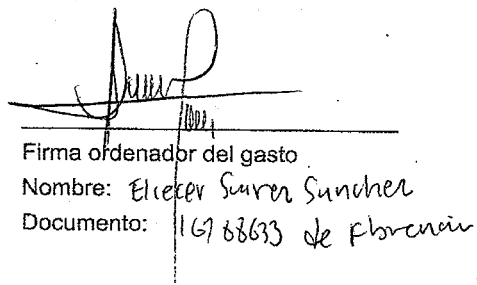 Firma ordenador del gasto
Nombre: Eliecer Suarez Sanchez
Documento: 16788633 de Florencia